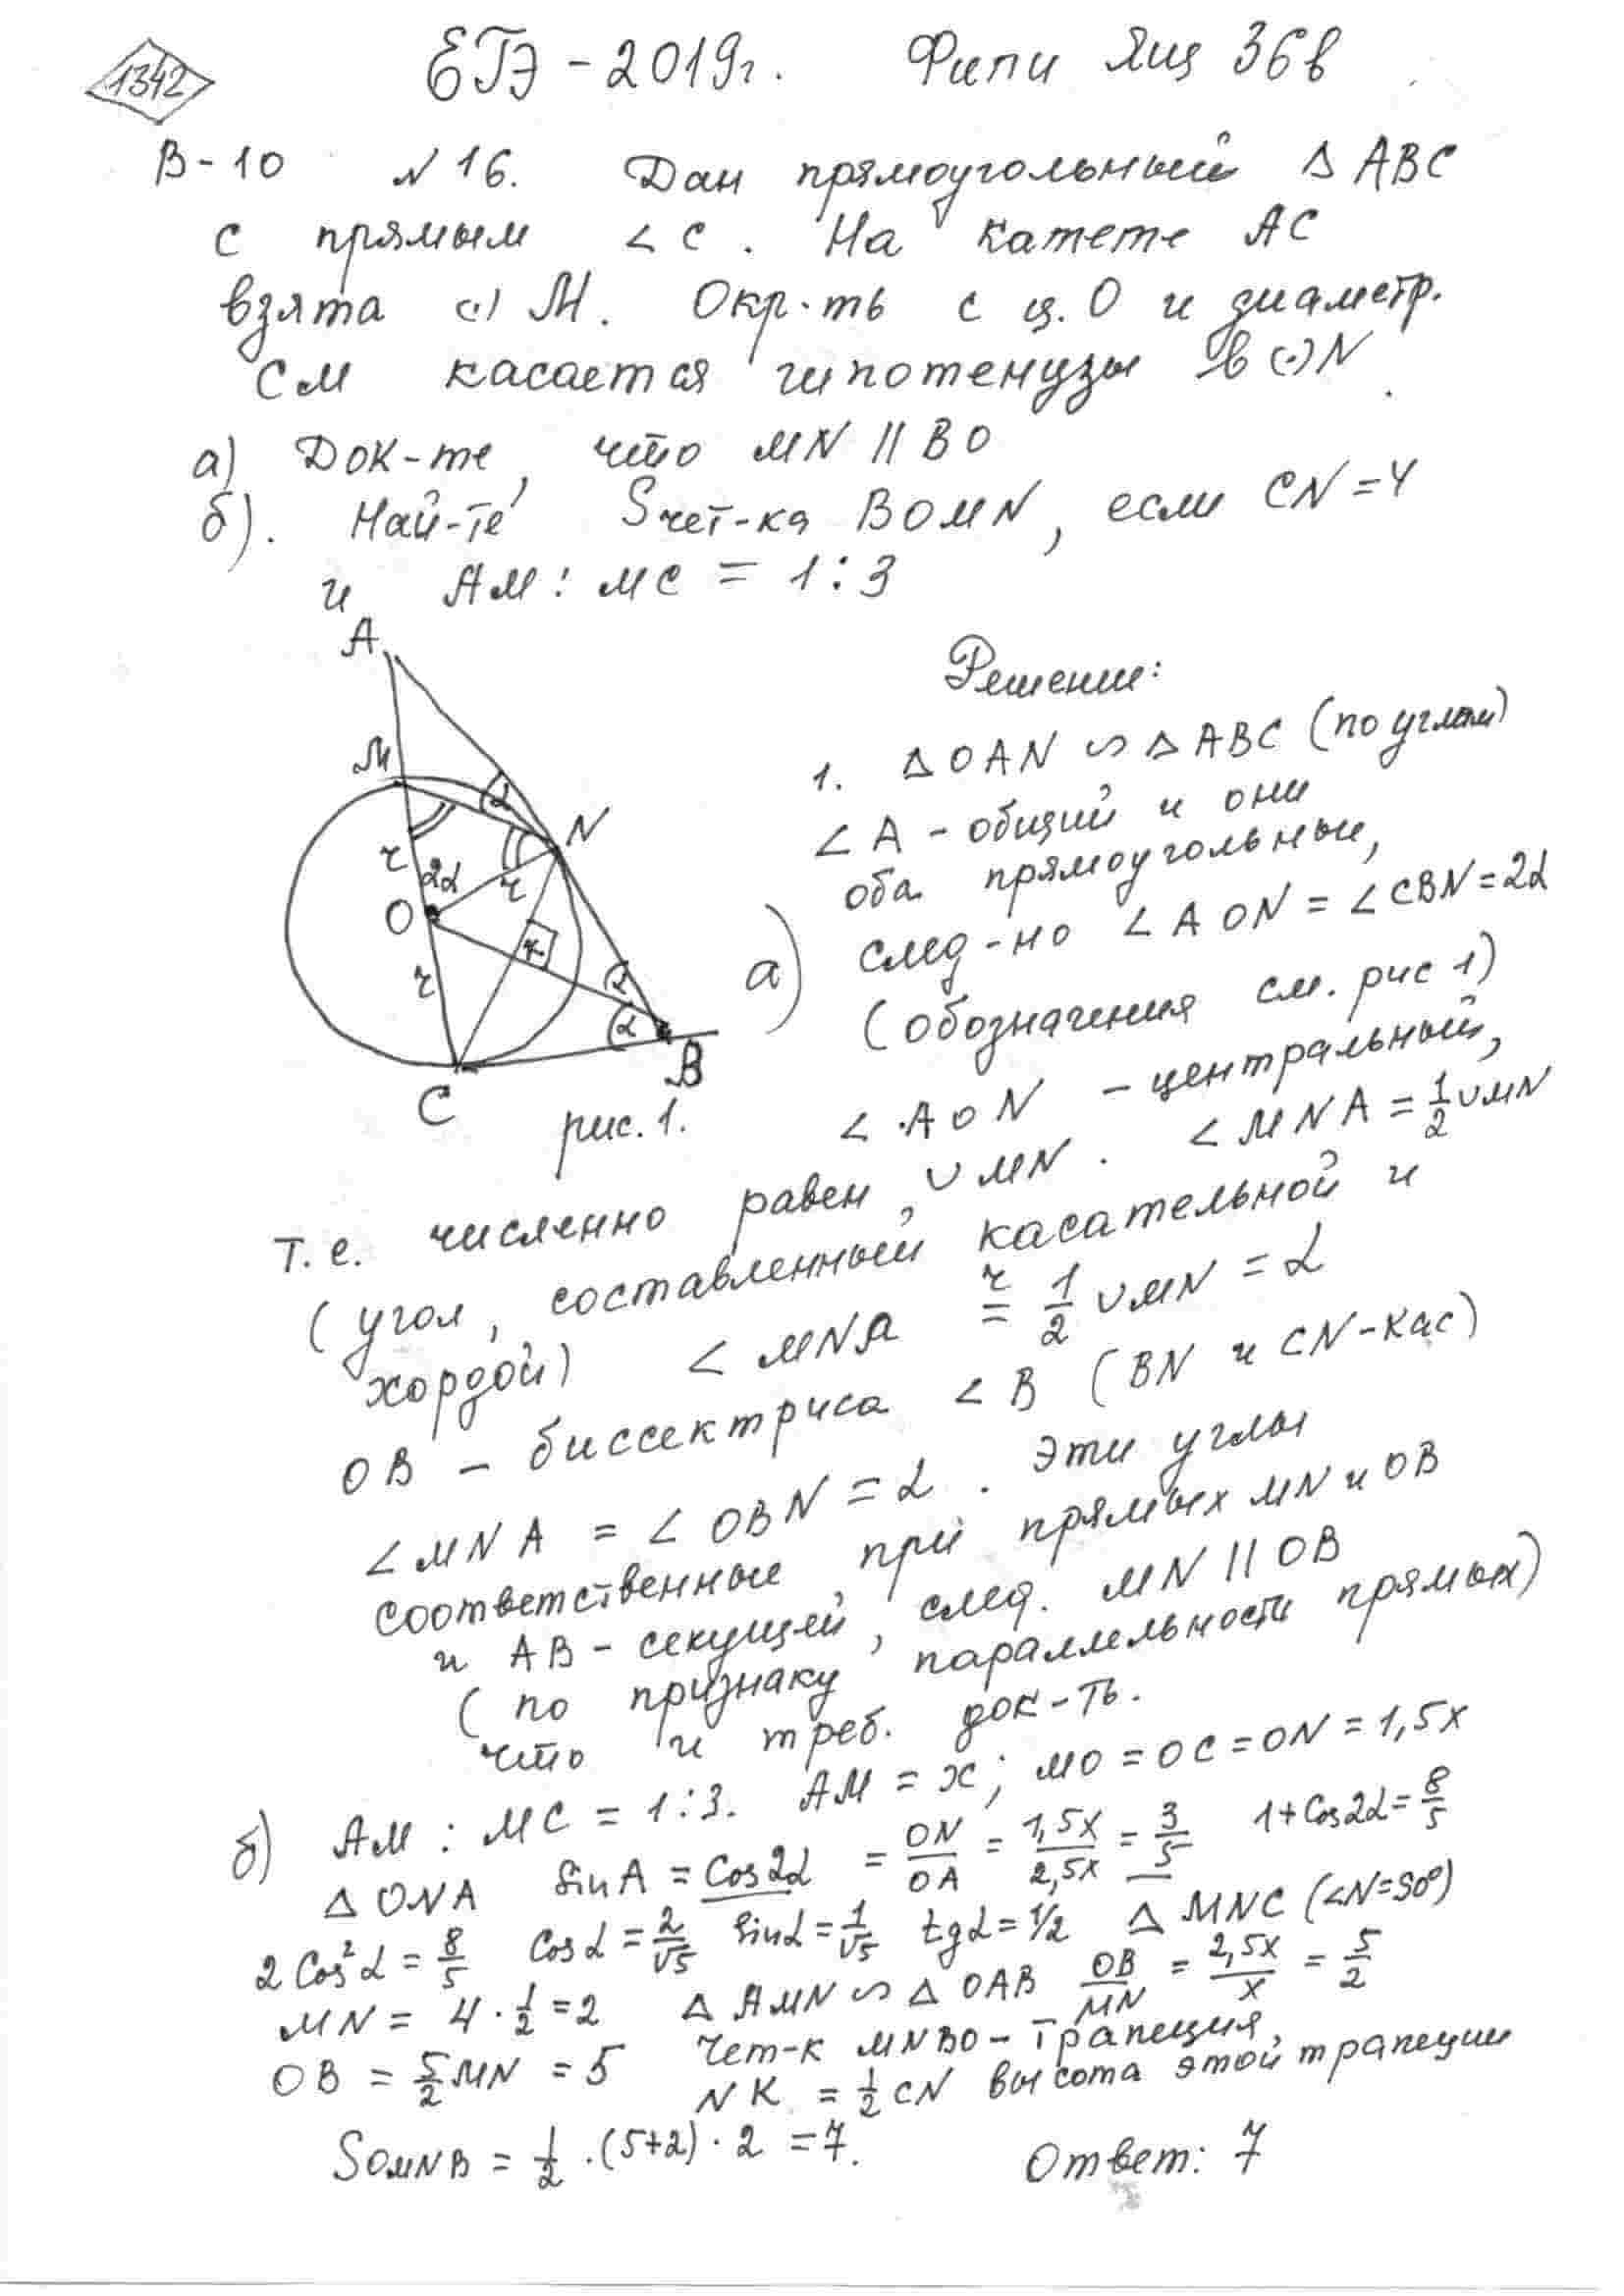 1342
ЕГЭ - 2019г. Фипи Ящ 36в
В-10 №16. Дан прямоугольный Δ ABC
с прямым ∠C. На катете AC
взята (·) M. Окр-ть с ц. O и диаметр.
CM касается гипотенузы в (·) N.
а) Док-те, что MN || BO
б). Най-те Sчет-ка BOMN, если CN = 4
и AM : MC = 1 : 3
A
M
N
r
2α
r
O
r
α
α
α
K
C
B
рис. 1.
Решение:
1. Δ OAN ∽ Δ ABC (по углам)
∠A - общий и они
оба прямоугольные,
а) след-но ∠AON = ∠CBN = 2α
(обозначения см. рис 1)
∠AON - центральный,
т.е. численно равен ∪MN. ∠MNA = 1/2 ∪MN
(угол, составленный касательной и
хордой) ∠MNA = 1/2 ∪MN = α
OB - биссектриса ∠B (BN и CN-кас)
∠MNA = ∠OBN = α. Эти углы
соответственные, при прямых MN и OB
и AB - секущей, след. MN || OB
(по признаку параллельности прямых)
что и треб. док-ть.
б) AM : MC = 1:3. AM = x; MO = OC = ON = 1,5x
Δ ONA sinA = Cos2α = ON/OA = 1,5x/2,5x = 3/5 1+Cos2α = 8/5
2Cos²α = 8/5 Cosα = 2/√5 sinα = 1/√5 tgα = 1/2 Δ MNC (∠N=90°)
MN = 4 · 1/2 = 2 Δ AMN ∽ Δ OAB OB/MN = 2,5x/x = 5/2
OB = 5/2 MN = 5 Чет-к MNBO - трапеция,
NK = 1/2 CN высота этой трапеции
SOMNB = 1/2 · (5+2) · 2 = 7. Ответ: 7